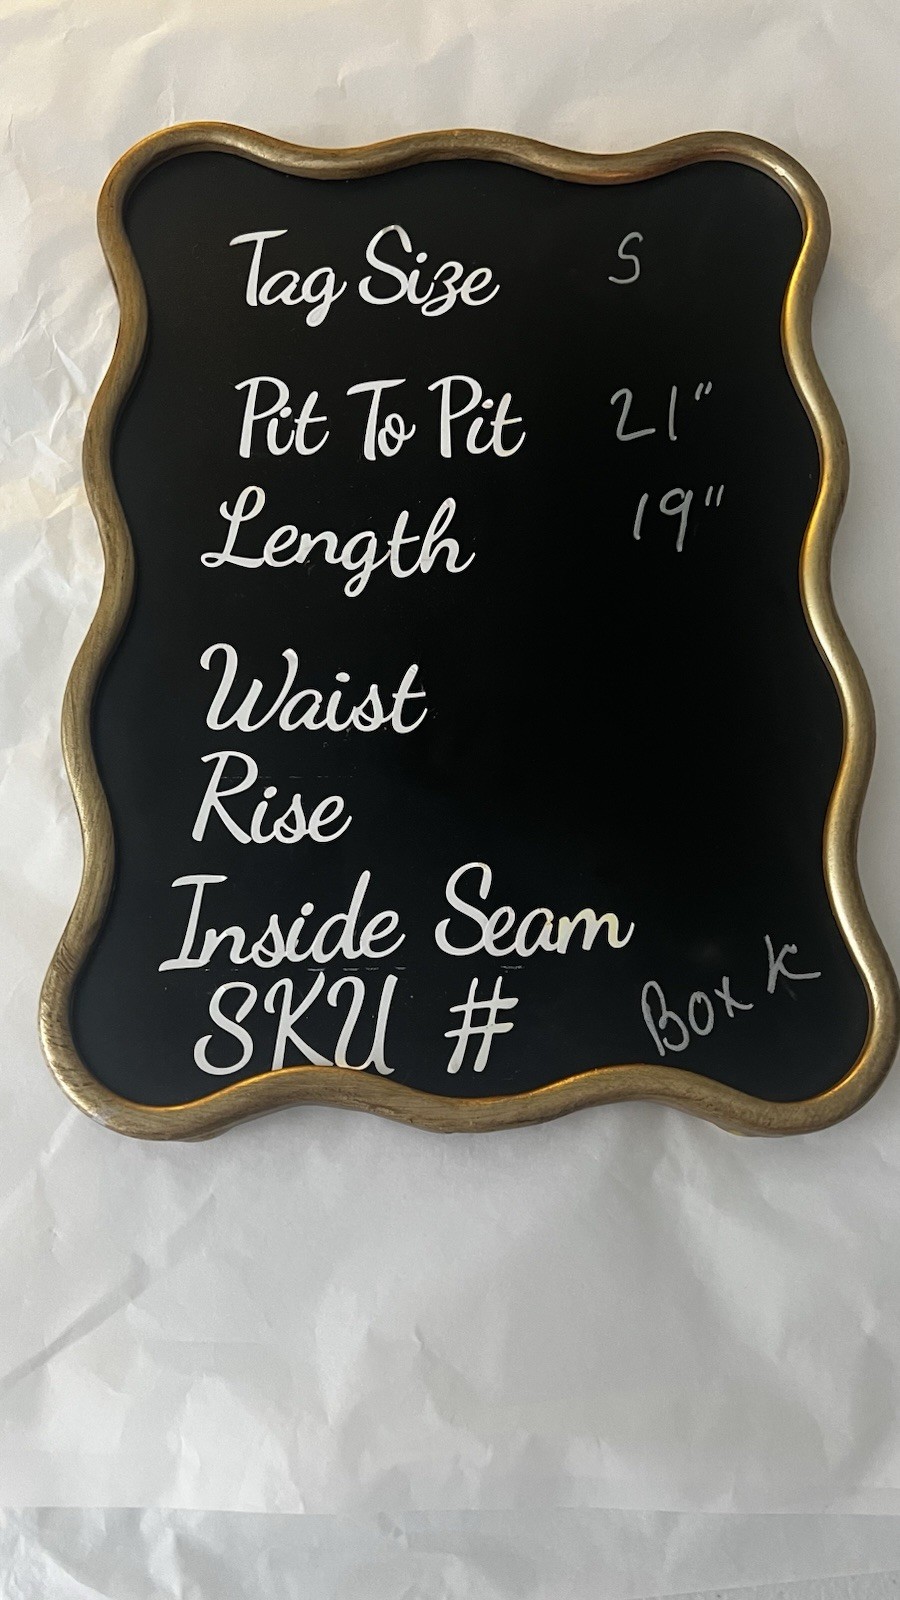 Tag Size S
Pit To Pit 21"
Length 19"
Waist
Rise
Inside Seam
SKU # Box K